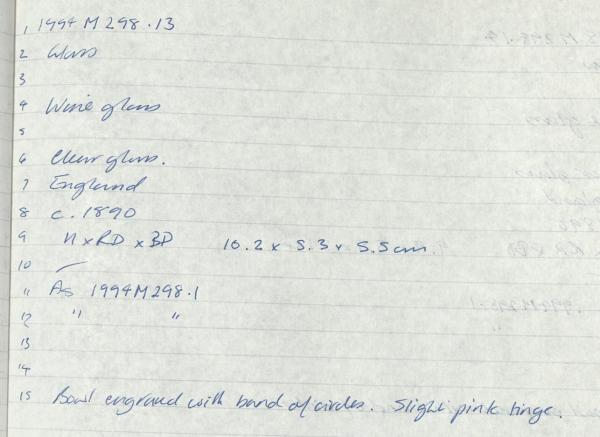 1 1994 M 298.13
2 Glass
3
4 Wine glass
5
6 Clear glass.
7 England
8 c. 1890
9 H x RD x BD 10.2 x 5.3 x 5.5cm.
10 —
11 As 1994M298.1
12 " "
13
14
15 Bowl engraved with band of circles. Slight pink tinge.